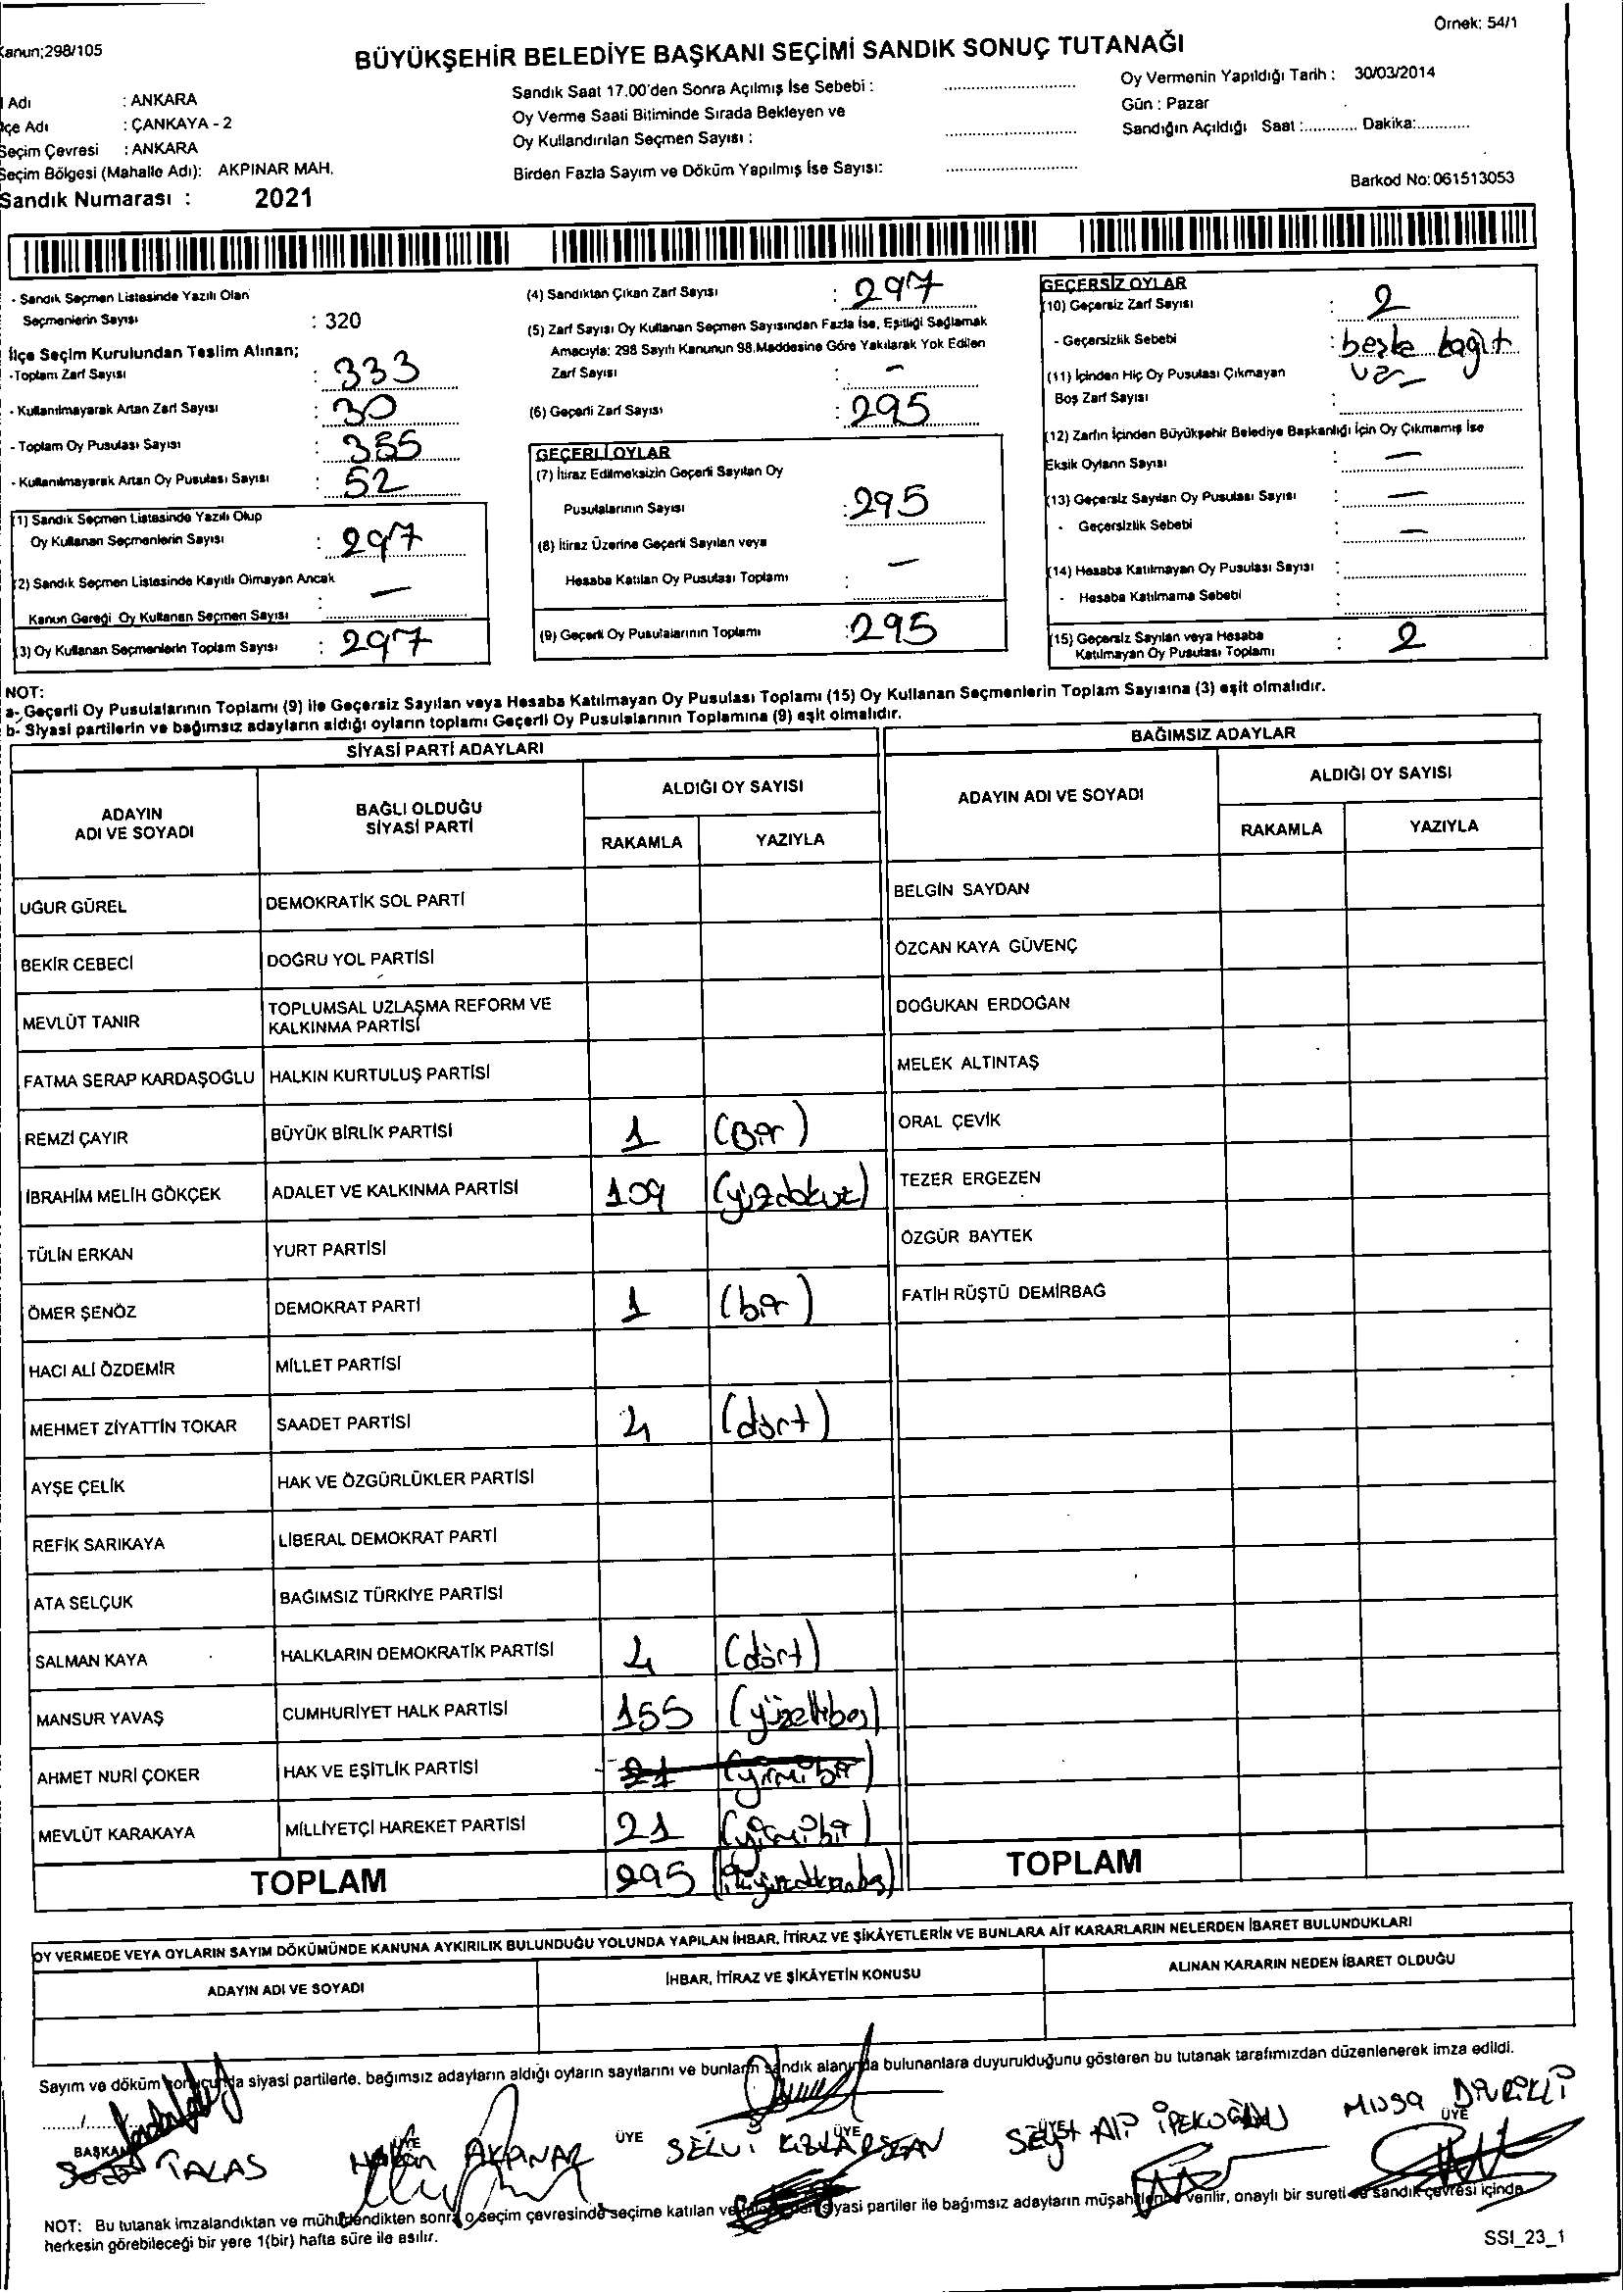 Örnek: 54/1
Kanun;298/105
BÜYÜKŞEHİR BELEDİYE BAŞKANI SEÇİMİ SANDIK SONUÇ TUTANAĞI
Adı : ANKARA
lçe Adı : ÇANKAYA - 2
Seçim Çevresi : ANKARA
Seçim Bölgesi (Mahalle Adı): AKPINAR MAH.
Sandık Numarası : 2021
Sandık Saat 17.00'den Sonra Açılmış İse Sebebi :
Oy Verme Saati Bitiminde Sırada Bekleyen ve
Oy Kullandırılan Seçmen Sayısı :
Birden Fazla Sayım ve Döküm Yapılmış İse Sayısı:
Oy Vermenin Yapıldığı Tarih : 30/03/2014
Gün : Pazar
Sandığın Açıldığı Saat :............ Dakika:............
Barkod No: 061513053
- Sandık Seçmen Listesinde Yazılı Olan
Seçmenlerin Sayısı : 320
İlçe Seçim Kurulundan Teslim Alınan;
-Toplam Zarf Sayısı : 333
- Kullanılmayarak Artan Zarf Sayısı : 30
- Toplam Oy Pusulası Sayısı : 355
- Kullanılmayarak Artan Oy Pusulası Sayısı : 52
(1) Sandık Seçmen Listesinde Yazılı Olup
Oy Kullanan Seçmenlerin Sayısı : 297
(2) Sandık Seçmen Listesinde Kayıtlı Olmayan Ancak
Kanun Gereği Oy Kullanan Seçmen Sayısı : —
(3) Oy Kullanan Seçmenlerin Toplam Sayısı : 297
(4) Sandıktan Çıkan Zarf Sayısı : 297
(5) Zarf Sayısı Oy Kullanan Seçmen Sayısından Fazla İse, Eşitliği Sağlamak
Amacıyla: 298 Sayılı Kanunun 98.Maddesine Göre Yakılarak Yok Edilen
Zarf Sayısı : —
(6) Geçerli Zarf Sayısı : 295
GEÇERLİ OYLAR
(7) İtiraz Edilmeksizin Geçerli Sayılan Oy
Pusulalarının Sayısı : 295
(8) İtiraz Üzerine Geçerli Sayılan veya
Hesaba Katılan Oy Pusulası Toplamı : —
(9) Geçerli Oy Pusulalarının Toplamı : 295
GEÇERSİZ OYLAR
(10) Geçersiz Zarf Sayısı : 2
- Geçersizlik Sebebi : beşka kağıt
var
(11) İçinden Hiç Oy Pusulası Çıkmayan
Boş Zarf Sayısı :
(12) Zarfın İçinden Büyükşehir Belediye Başkanlığı İçin Oy Çıkmamış İse
Eksik Oyların Sayısı : —
(13) Geçersiz Sayılan Oy Pusulası Sayısı : —
- Geçersizlik Sebebi : —
(14) Hesaba Katılmayan Oy Pusulası Sayısı :
- Hesaba Katılmama Sebebi :
(15) Geçersiz Sayılan veya Hesaba
Katılmayan Oy Pusulası Toplamı : 2
NOT:
a- Geçerli Oy Pusulalarının Toplamı (9) ile Geçersiz Sayılan veya Hesaba Katılmayan Oy Pusulası Toplamı (15) Oy Kullanan Seçmenlerin Toplam Sayısına (3) eşit olmalıdır.
b- Siyasi partilerin ve bağımsız adayların aldığı oyların toplamı Geçerli Oy Pusulalarının Toplamına (9) eşit olmalıdır.
SİYASİ PARTİ ADAYLARI
ADAYIN
ADI VE SOYADI
BAĞLI OLDUĞU
SİYASİ PARTİ
ALDIĞI OY SAYISI
RAKAMLA YAZIYLA
UĞUR GÜREL DEMOKRATİK SOL PARTİ
BEKİR CEBECİ DOĞRU YOL PARTİSİ
MEVLÜT TANIR TOPLUMSAL UZLAŞMA REFORM VE
KALKINMA PARTİSİ
FATMA SERAP KARDAŞOĞLU HALKIN KURTULUŞ PARTİSİ
REMZİ ÇAYIR BÜYÜK BİRLİK PARTİSİ 1 (Bir)
İBRAHİM MELİH GÖKÇEK ADALET VE KALKINMA PARTİSİ 109 (yüzdokuz)
TÜLİN ERKAN YURT PARTİSİ
ÖMER ŞENÖZ DEMOKRAT PARTİ 1 (bir)
HACI ALİ ÖZDEMİR MİLLET PARTİSİ
MEHMET ZİYATTİN TOKAR SAADET PARTİSİ 4 (dört)
AYŞE ÇELİK HAK VE ÖZGÜRLÜKLER PARTİSİ
REFİK SARIKAYA LİBERAL DEMOKRAT PARTİ
ATA SELÇUK BAĞIMSIZ TÜRKİYE PARTİSİ
SALMAN KAYA HALKLARIN DEMOKRATİK PARTİSİ 4 (dört)
MANSUR YAVAŞ CUMHURİYET HALK PARTİSİ 155 (yüzellibeş)
AHMET NURİ ÇOKER HAK VE EŞİTLİK PARTİSİ 21 (yirmibir)
MEVLÜT KARAKAYA MİLLİYETÇİ HAREKET PARTİSİ 21 (yirmibir)
TOPLAM 295 (ikiyüzdoksanbeş)
BAĞIMSIZ ADAYLAR
ADAYIN ADI VE SOYADI
ALDIĞI OY SAYISI
RAKAMLA YAZIYLA
BELGİN SAYDAN
ÖZCAN KAYA GÜVENÇ
DOĞUKAN ERDOĞAN
MELEK ALTINTAŞ
ORAL ÇEVİK
TEZER ERGEZEN
ÖZGÜR BAYTEK
FATİH RÜŞTÜ DEMİRBAĞ
TOPLAM
OY VERMEDE VEYA OYLARIN SAYIM DÖKÜMÜNDE KANUNA AYKIRILIK BULUNDUĞU YOLUNDA YAPILAN İHBAR, İTİRAZ VE ŞİKÂYETLERİN VE BUNLARA AİT KARARLARIN NELERDEN İBARET BULUNDUKLARI
ADAYIN ADI VE SOYADI İHBAR, İTİRAZ VE ŞİKÂYETİN KONUSU ALINAN KARARIN NEDEN İBARET OLDUĞU
Sayım ve döküm sonucunda siyasi partilerle, bağımsız adayların aldığı oyların sayılarını ve bunların sandık alanında bulunanlara duyurulduğunu gösteren bu tutanak tarafımızdan düzenlenerek imza edildi.
BAŞKAN ÜYE ÜYE ÜYE ÜYE ÜYE
TALAS
Hakan AKPINAR
SELVİ KIZILARSLAN
SEYİT ALP İPEKOĞLU
MUSA DİVRİKLİ
NOT: Bu tutanak imzalandıktan ve mühürlendikten sonra o seçim çevresinde seçime katılan ve siyasi partiler ile bağımsız adayların müşahitlerine verilir, onaylı bir sureti de sandık çevresi içinde
herkesin görebileceği bir yere 1(bir) hafta süre ile asılır.
SSI_23_1